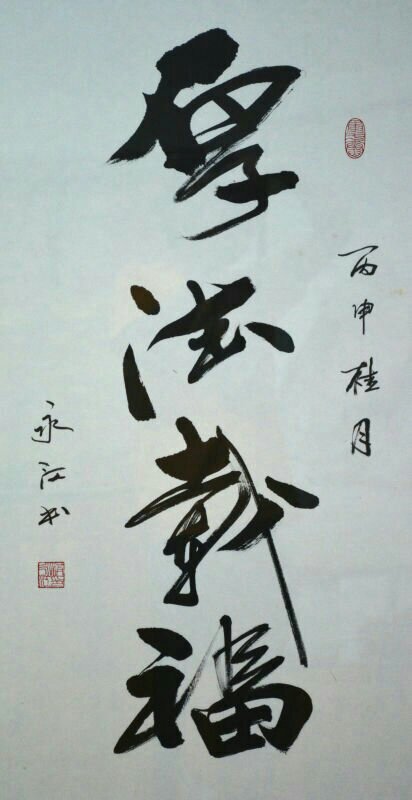 丙申桂月
厚德载福
永江书